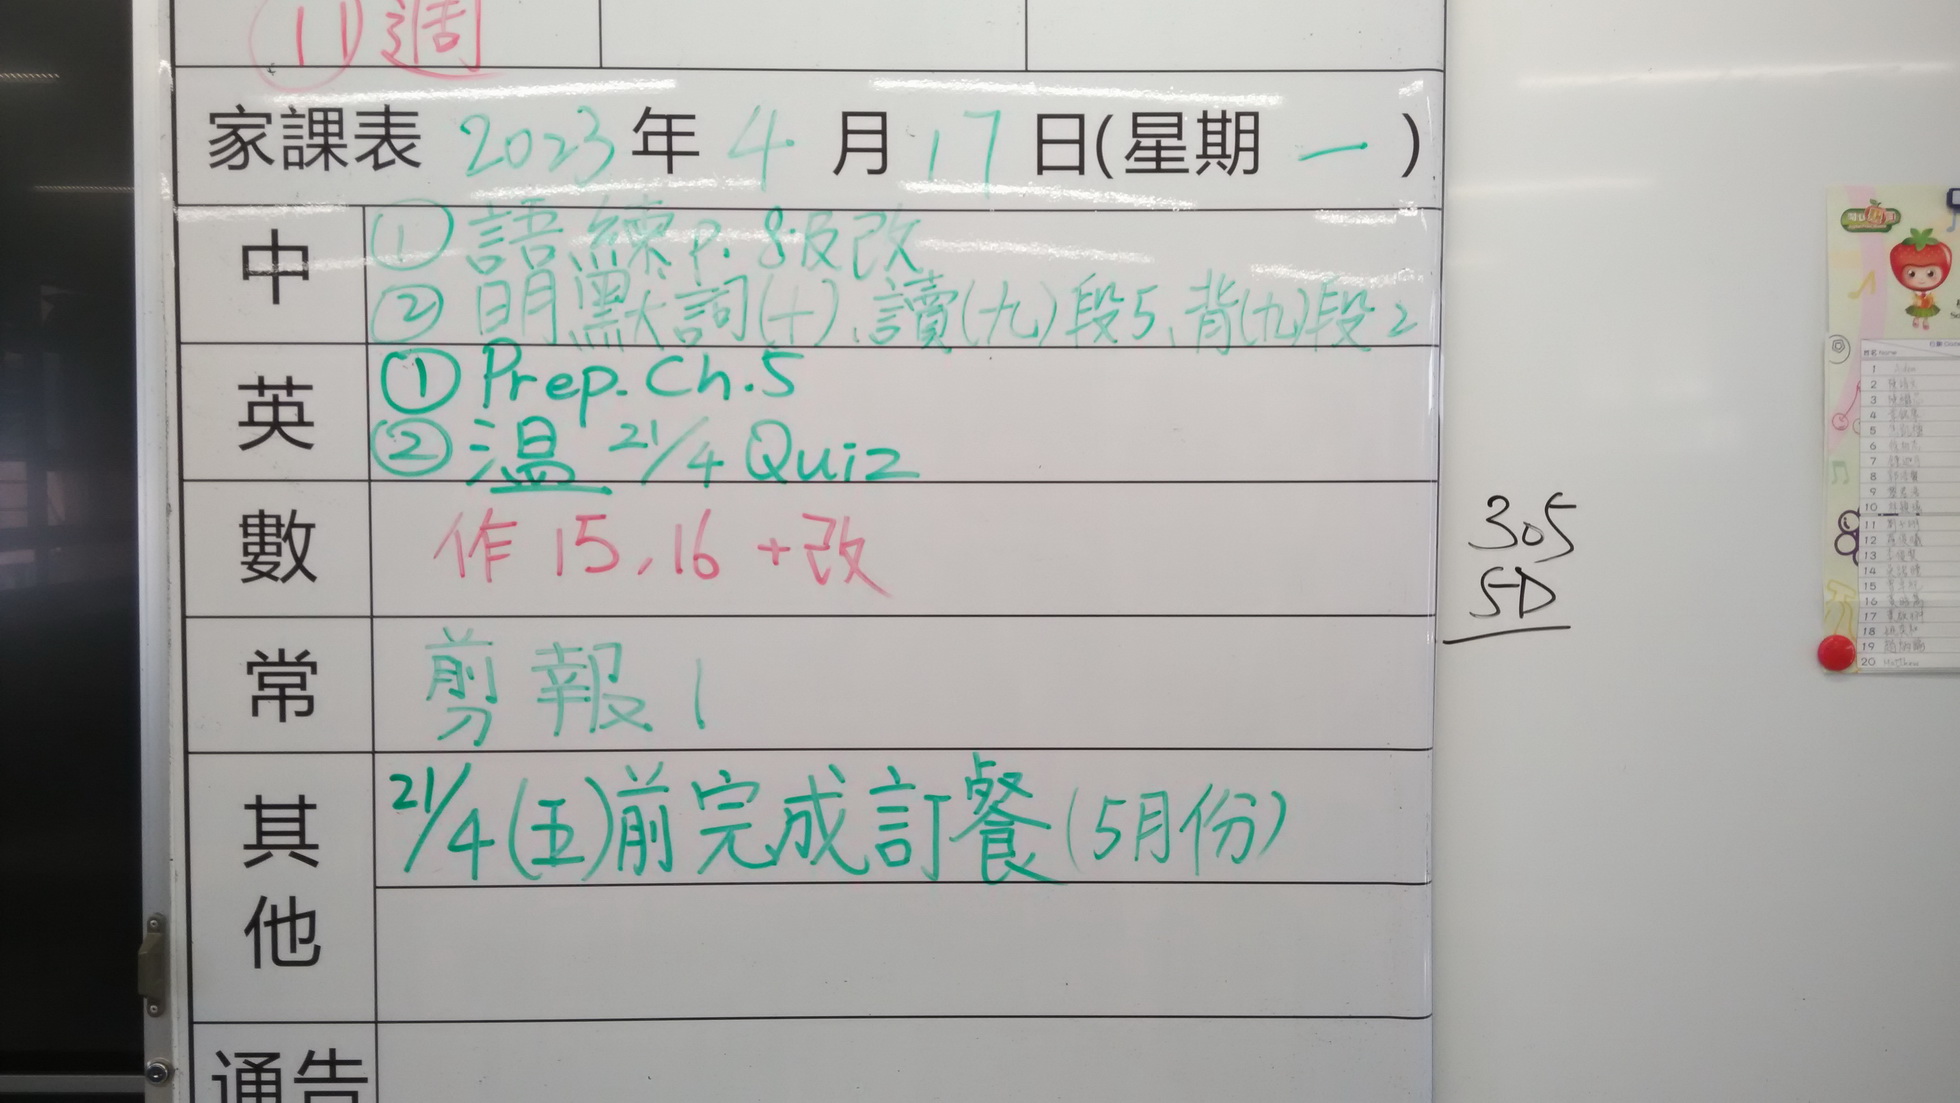 ⑪週
家課表 2023年4月17日(星期一)
中
①語練P.8及改
②明默詞(十)、讀(九)段5、背(九)段2
英
①Prep. Ch.5
②温 21/4 Quiz
數
作15,16+改
常
剪報1
其他
21/4(五)前完成訂餐(5月份)
通告
305
5D
姓名 Name
1
2
3
4
5
6
7
8
9
10
11
12
13
14
15
16
17
18
19
20 Matthew